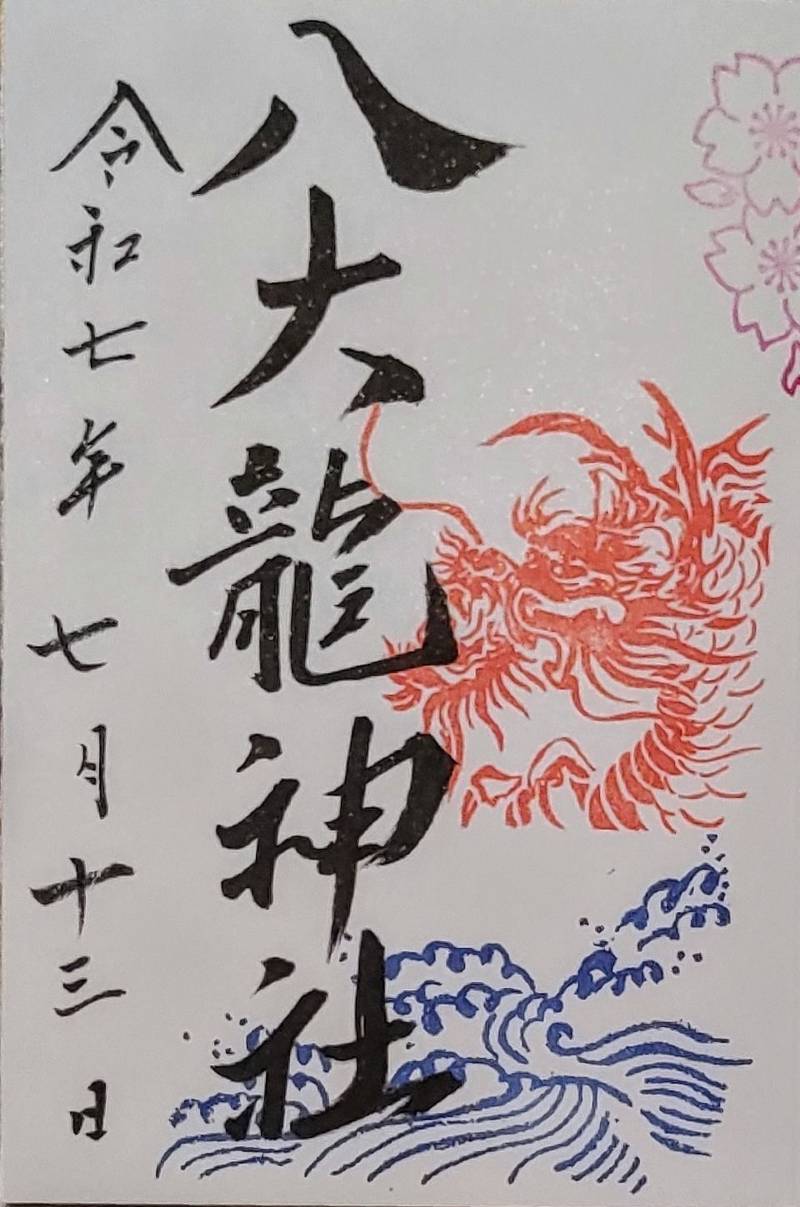 八大龍神社
令和七年 七月十三日